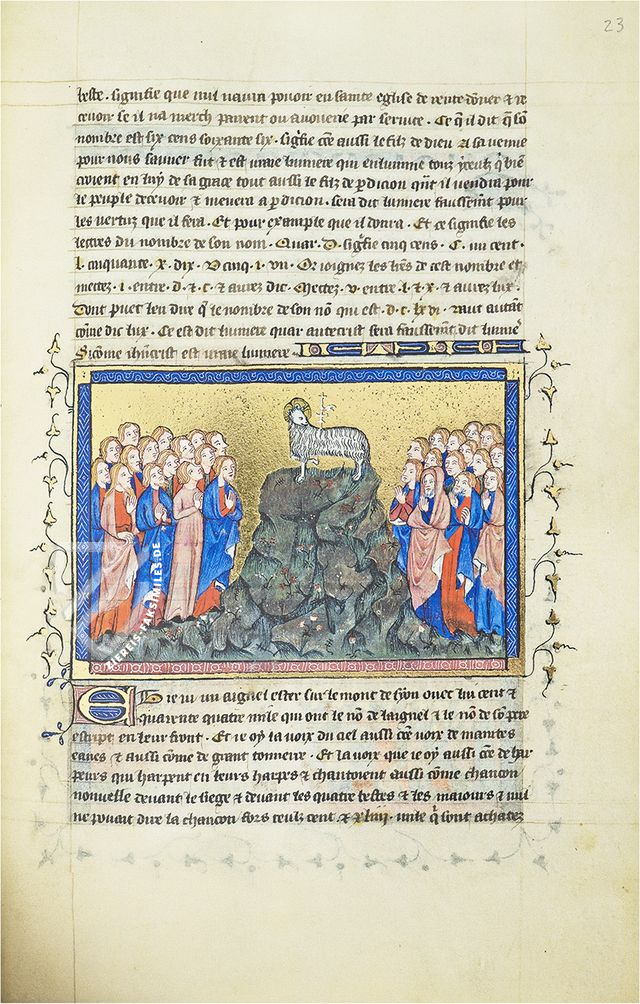 23
beste · signifie que nul naura pouoir en sainte eglise de rente doner & re
ceuoir se il na merch parent ou auouerie par seruice · Ce q̄ il dit q̄ sō
nombre est six cens soixante six · sig̃fie cōe aussi le filz de dieu a sa venue
pour nous sauuer fut & est vraie lumiere qui enlumine touz yceulz q̄ biē
croient en luy de sa grace tout aussi le filz de ꝑdicion qñt il vendra pour
le peuple deceuoir & mener a ꝑdicion · sera dit lumiere faussemt̄ pour
les vertuz que il fera · Et pour example que il donra · Et ce signifie les
lettres du nombre de son nom · Quar · D · sig̃fie cinq cens · C · un cent ·
l · cinquante · x · dix · V cinq · i · vn · Or ioignez les tr̄es de cest nombre et
mectez · i · entre · d · & · c · & aurez dic · Mectez · v · entre · l · & · x · & aurez lux ·
Dont puet len dire q̄ le nombre de son nō qui est · d · c · lxvi · vaut autāt
cōme dic lux · Ce est dit lumiere quar antecrist sera faussemt̄ dit lumie᷑
Sicōme ih̄ucrist est vraie lumiere
ZEREIS-FAKSIMILES.DE
E Et ie vi un aignel ester sur le mont de syon ouec lui cent &
quarente quatre mile qui ont le nō de laignel & le nō de sō pere
escript en leur front · Et ie oÿ la voix du ciel aussi cōe voix de maintes
eaues & aussi cōme de grant tonnerre · Et la voix que ie oÿ aussi cōe de har
peurs qui harpent en leurs harpes & chantoient aussi cōme chancon
nouuelle deuant le siege & deuant les quatre bestes & les maiours & nul
ne pouait dire la chancon fors ceulz cent & xliiij · mile q̄ sont achatez